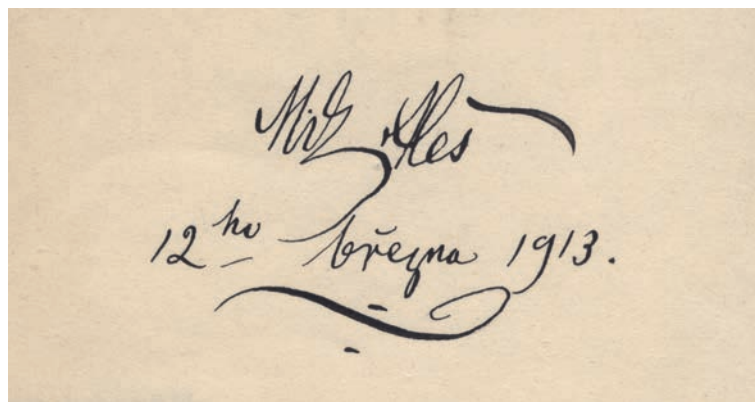 Mik Aleš
12ho března 1913.